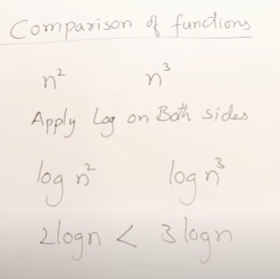 Comparison of functions
n² n³
Apply Log on Both sides
log n² log n³
2logn < 3logn